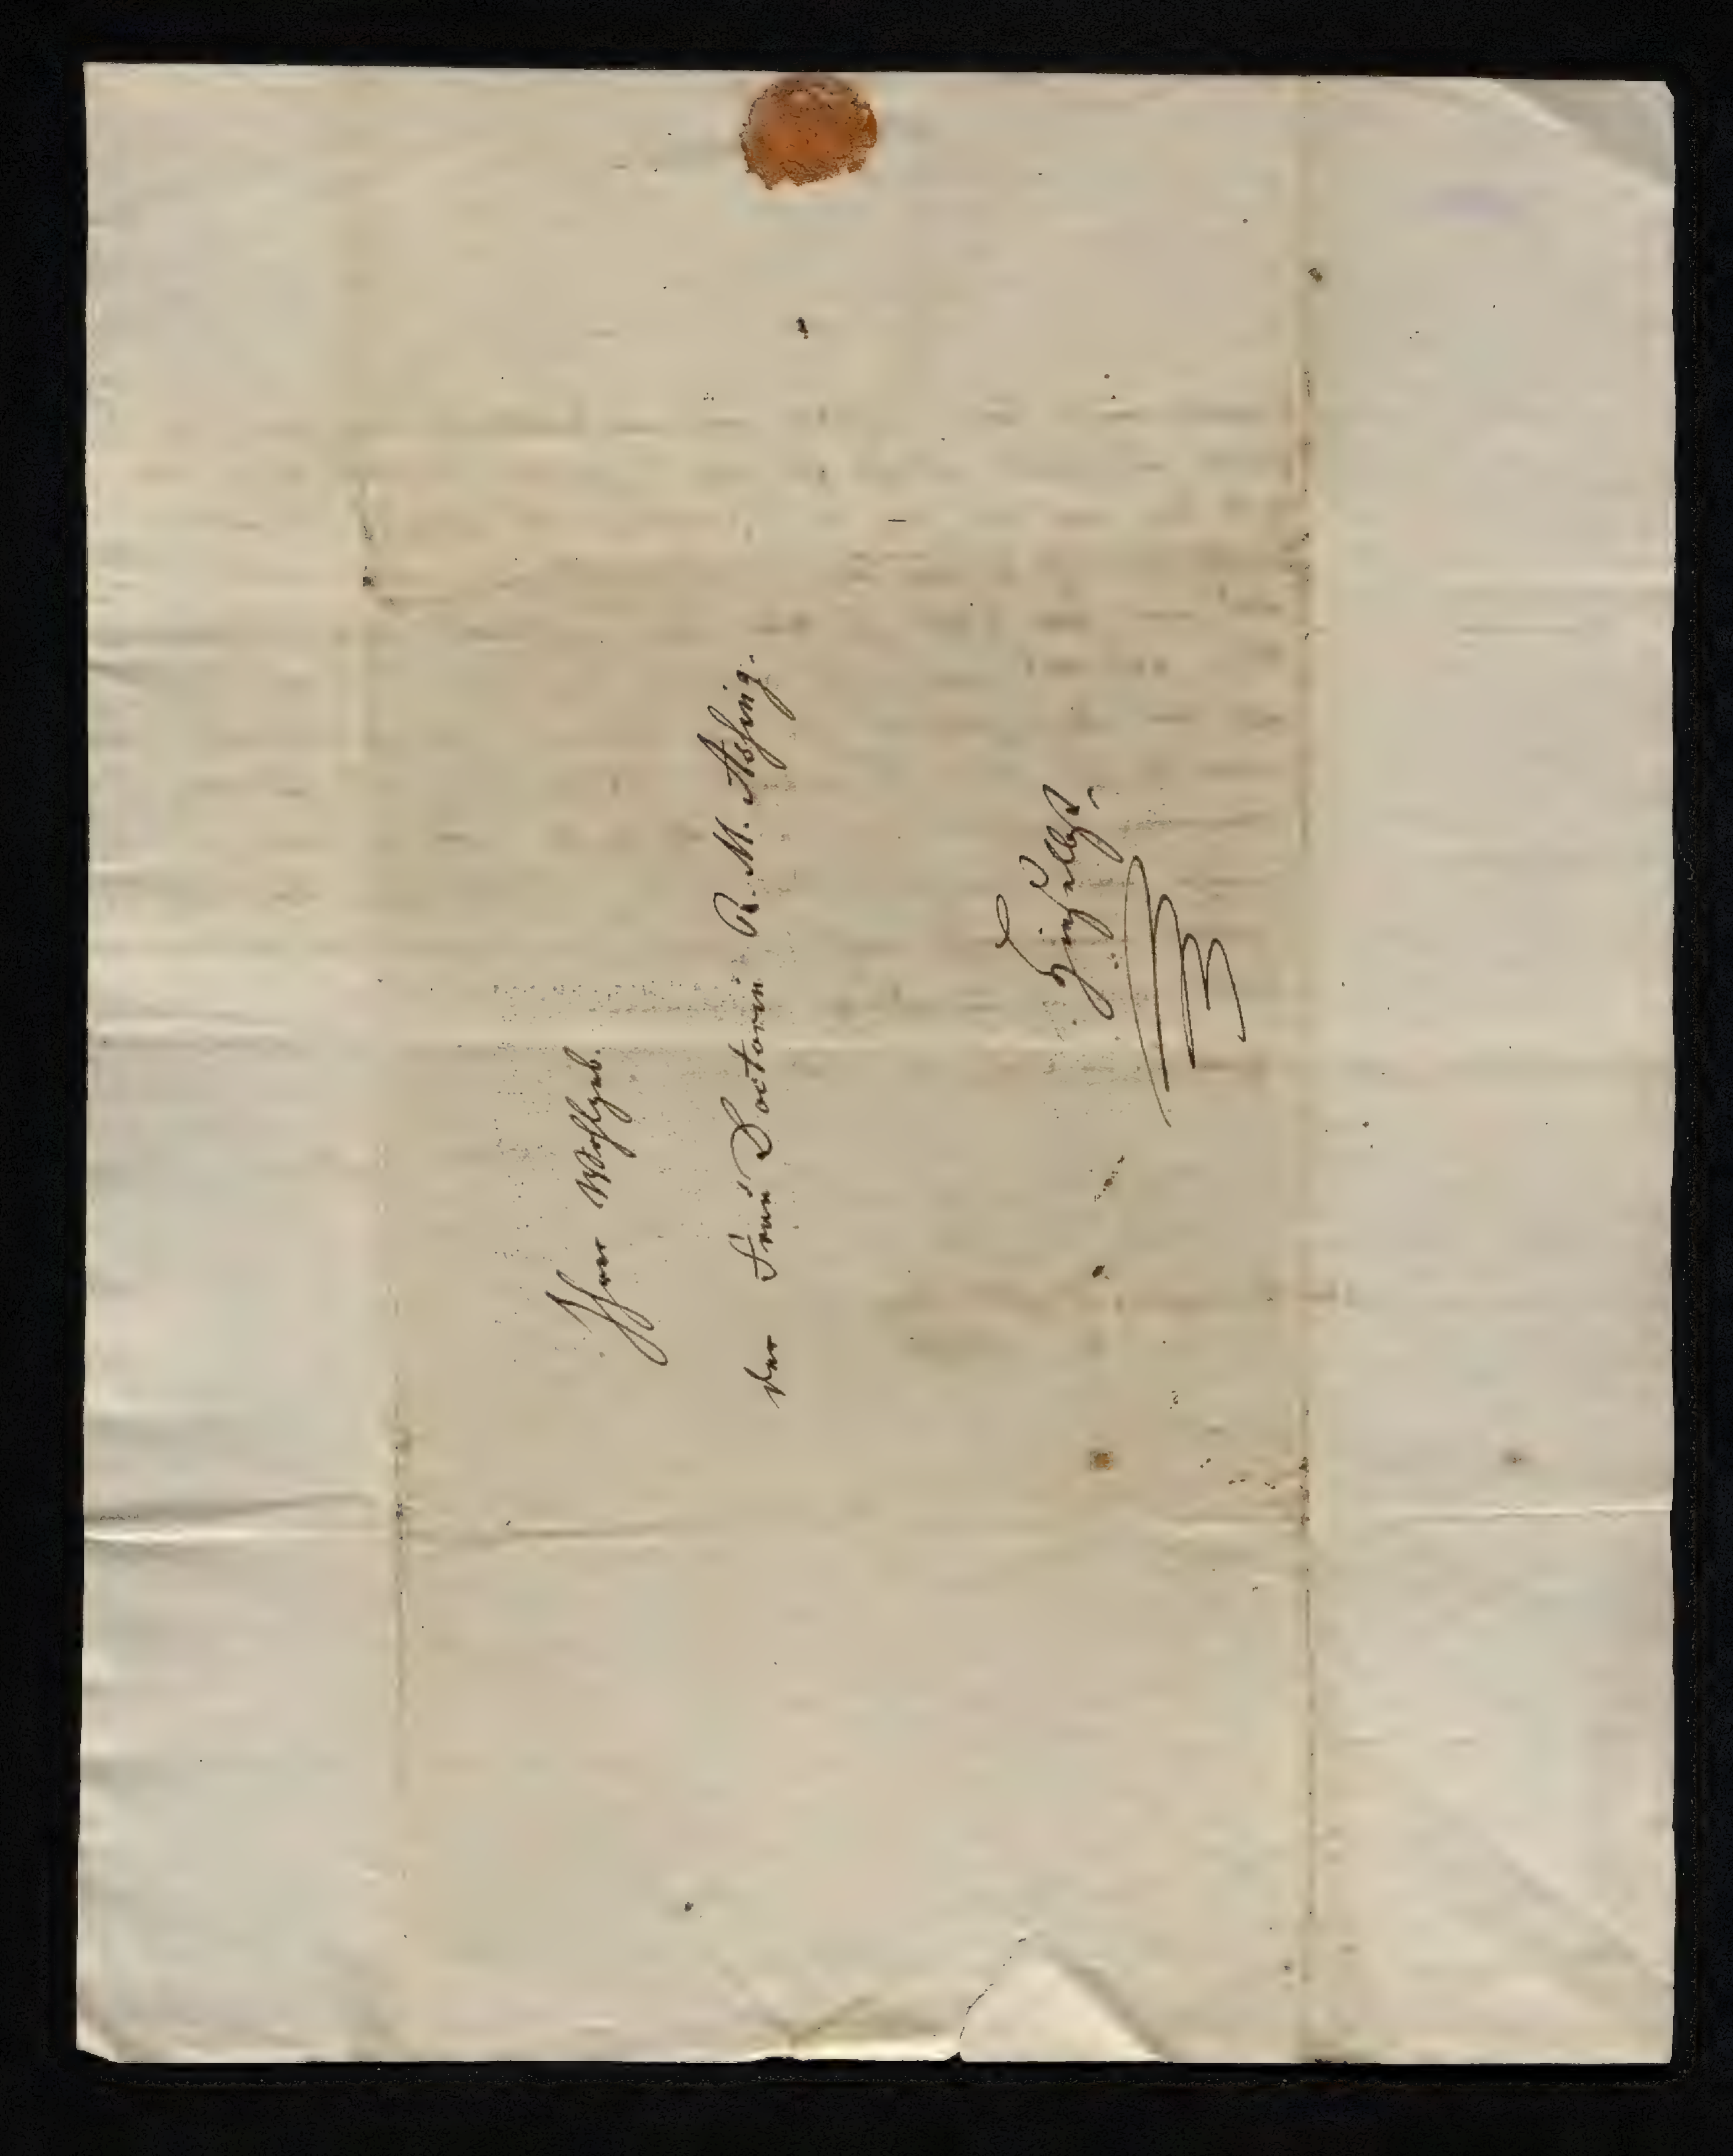 Ihrer Wohlgeb.
der Frau Doctorin R. M. Assing.
Hieselbst